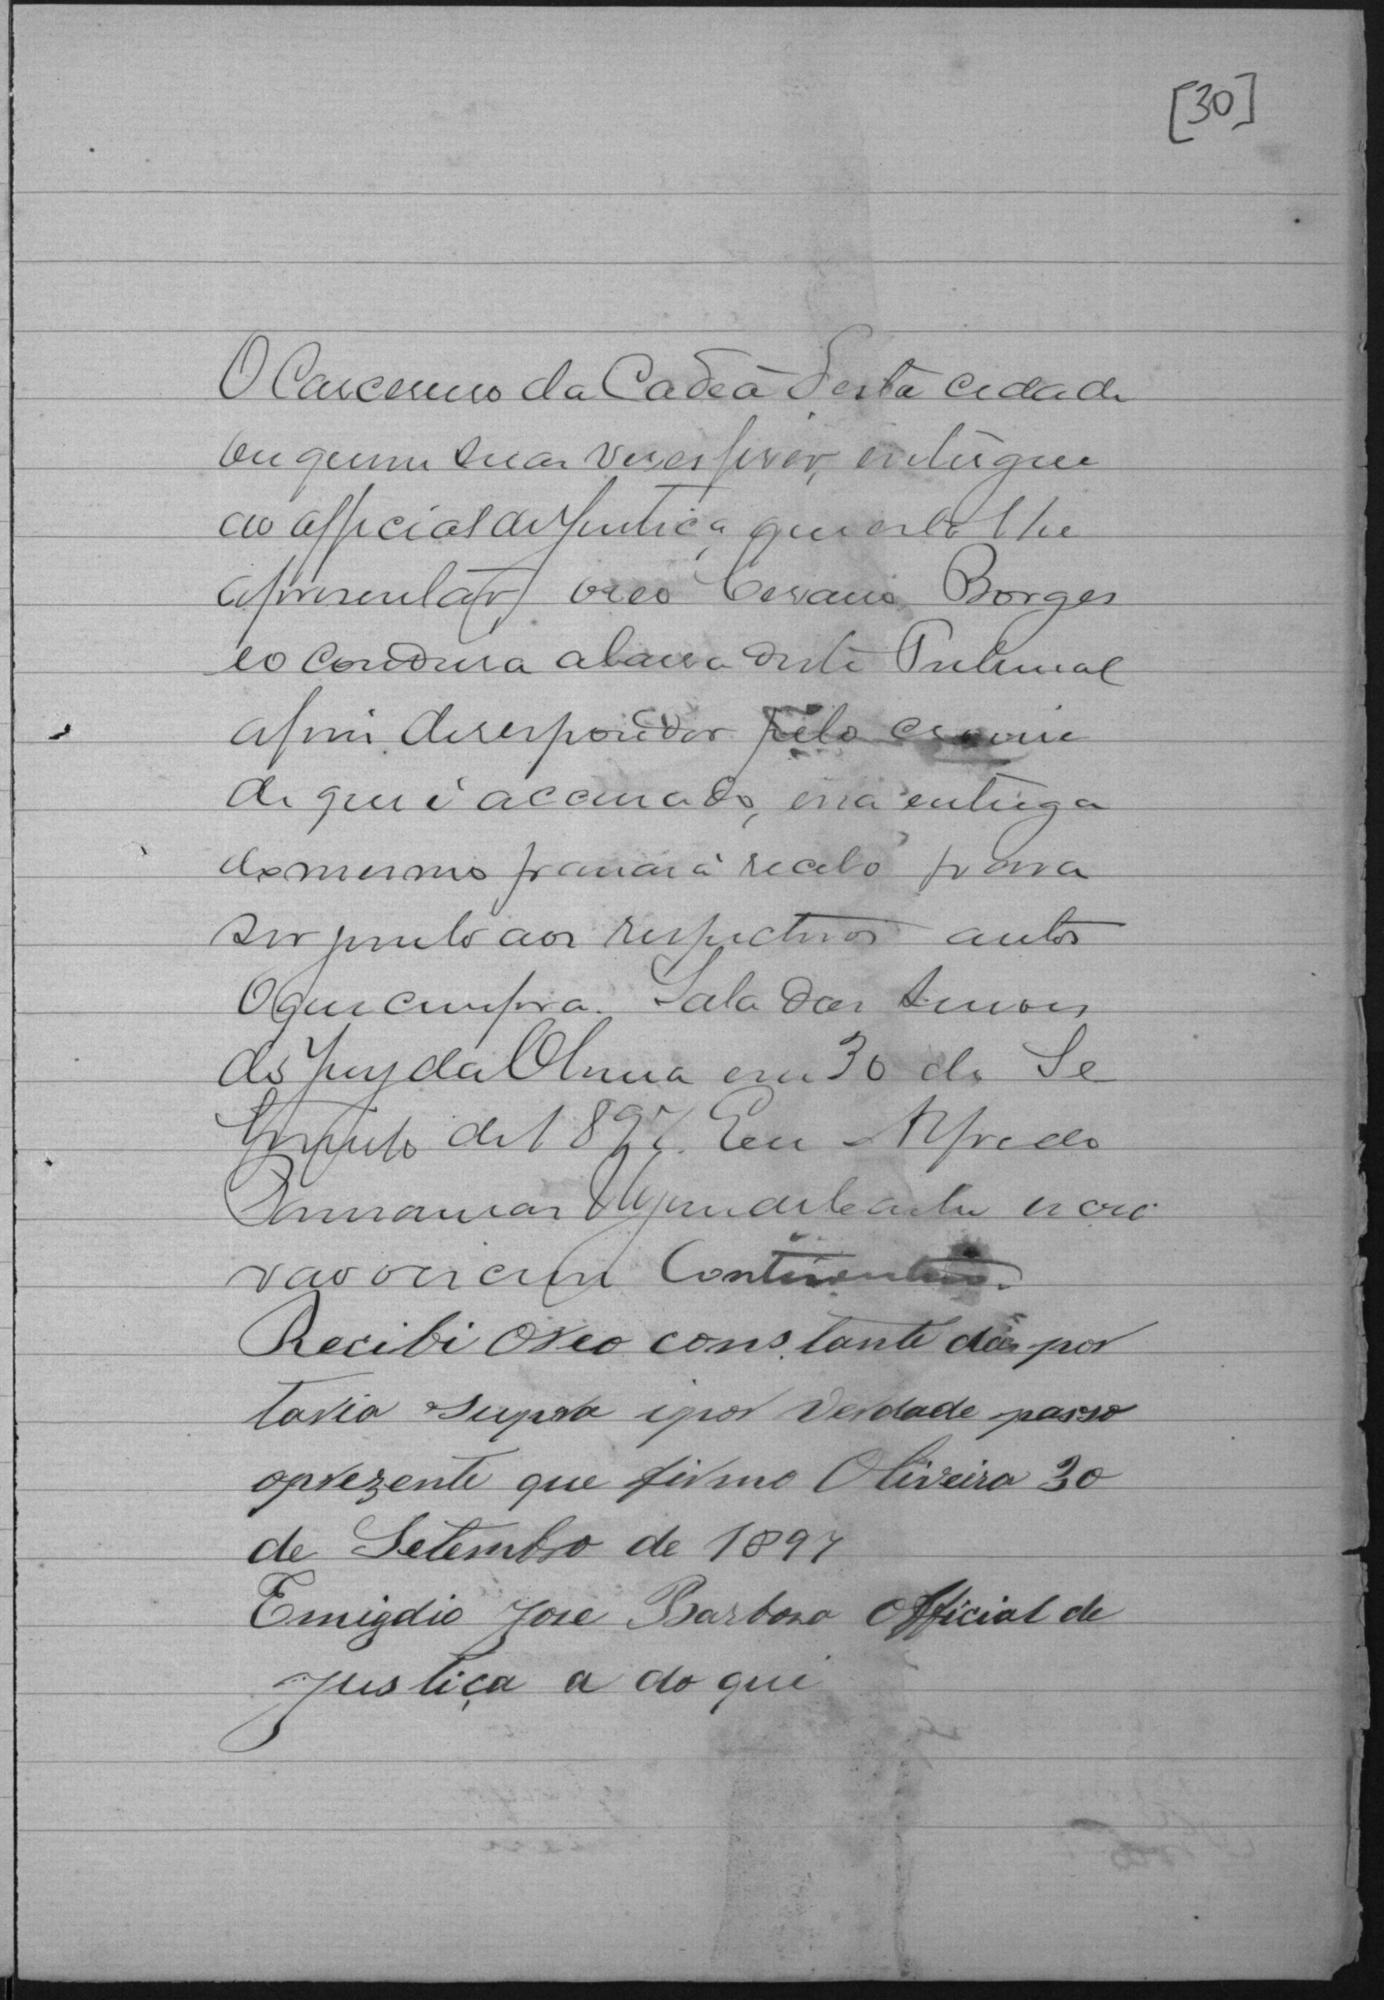 [30]
O Carcereiro da Cadeà desta cidade
ou quem suas veses fizer, entregue
ao official de Justiça que esta lhe
apresentar, oreo Cesario Borges
eo condusa abarra deste Tribunal
afim deresponder pelo crime
de que é accusado, ena entrega
domesmo passará recibo para
ser junto aos respectivos autos
Oque cumpra. Sala das
do Jury da em 30 de Se
tembro de 1897. Eu Alfredo
escri
vão oescrevi
Recibi oreo constante da por
taria supra ipor verdade passo
oprezente que firmo Oliveira 30
de Setembro de 1897
Emigdio Jose Barbosa Official de
Justiça a do qui